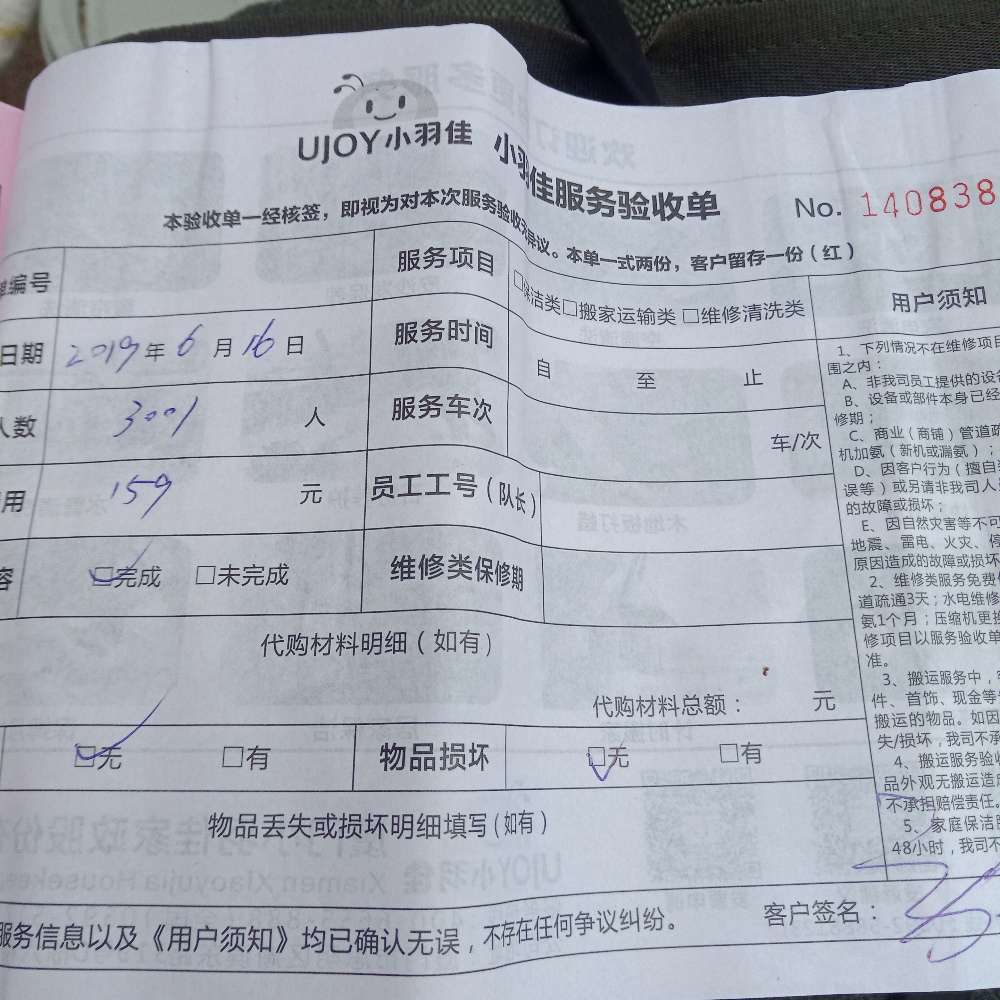 UJOY小羽佳 小羽佳服务验收单 No. 140838
本验收单一经核签，即视为对本次服务验收无异议。本单一式两份，客户留存一份（红）
编号 服务项目 □保洁类□搬家运输类 □维修清洗类
日期 2019年 6 月 16 日 服务时间 自 至 止
人数 3001 人 服务车次 车/次
用 159 元 员工工号（队长）
容 □完成 □未完成 维修类保修期
代购材料明细（如有）
代购材料总额： 元
□无 □有 物品损坏 □无 □有
物品丢失或损坏明细填写（如有）
服务信息以及《用户须知》均已确认无误，不存在任何争议纠纷。 客户签名：
用户须知
1、下列情况不在维修项目
围之内：
A、非我司员工提供的设备
B、设备或部件本身已经
修期；
C、商业（商铺）管道疏
机加氨（新机或漏氨）；
D、因客户行为（擅自
误等）或另请非我司人
的故障或损坏；
E、因自然灾害等不可
地震、雷电、火灾、停
原因造成的故障或损坏
2、维修类服务免费
道疏通3天；水电维修
氨1个月；压缩机更换
修项目以服务验收单
准。
3、搬运服务中，
件、首饰、现金等
搬运的物品。如因
失/损坏，我司不承
4、搬运服务验收
品外观无搬运造成
不承担赔偿责任。
5、家庭保洁
48小时，我司不